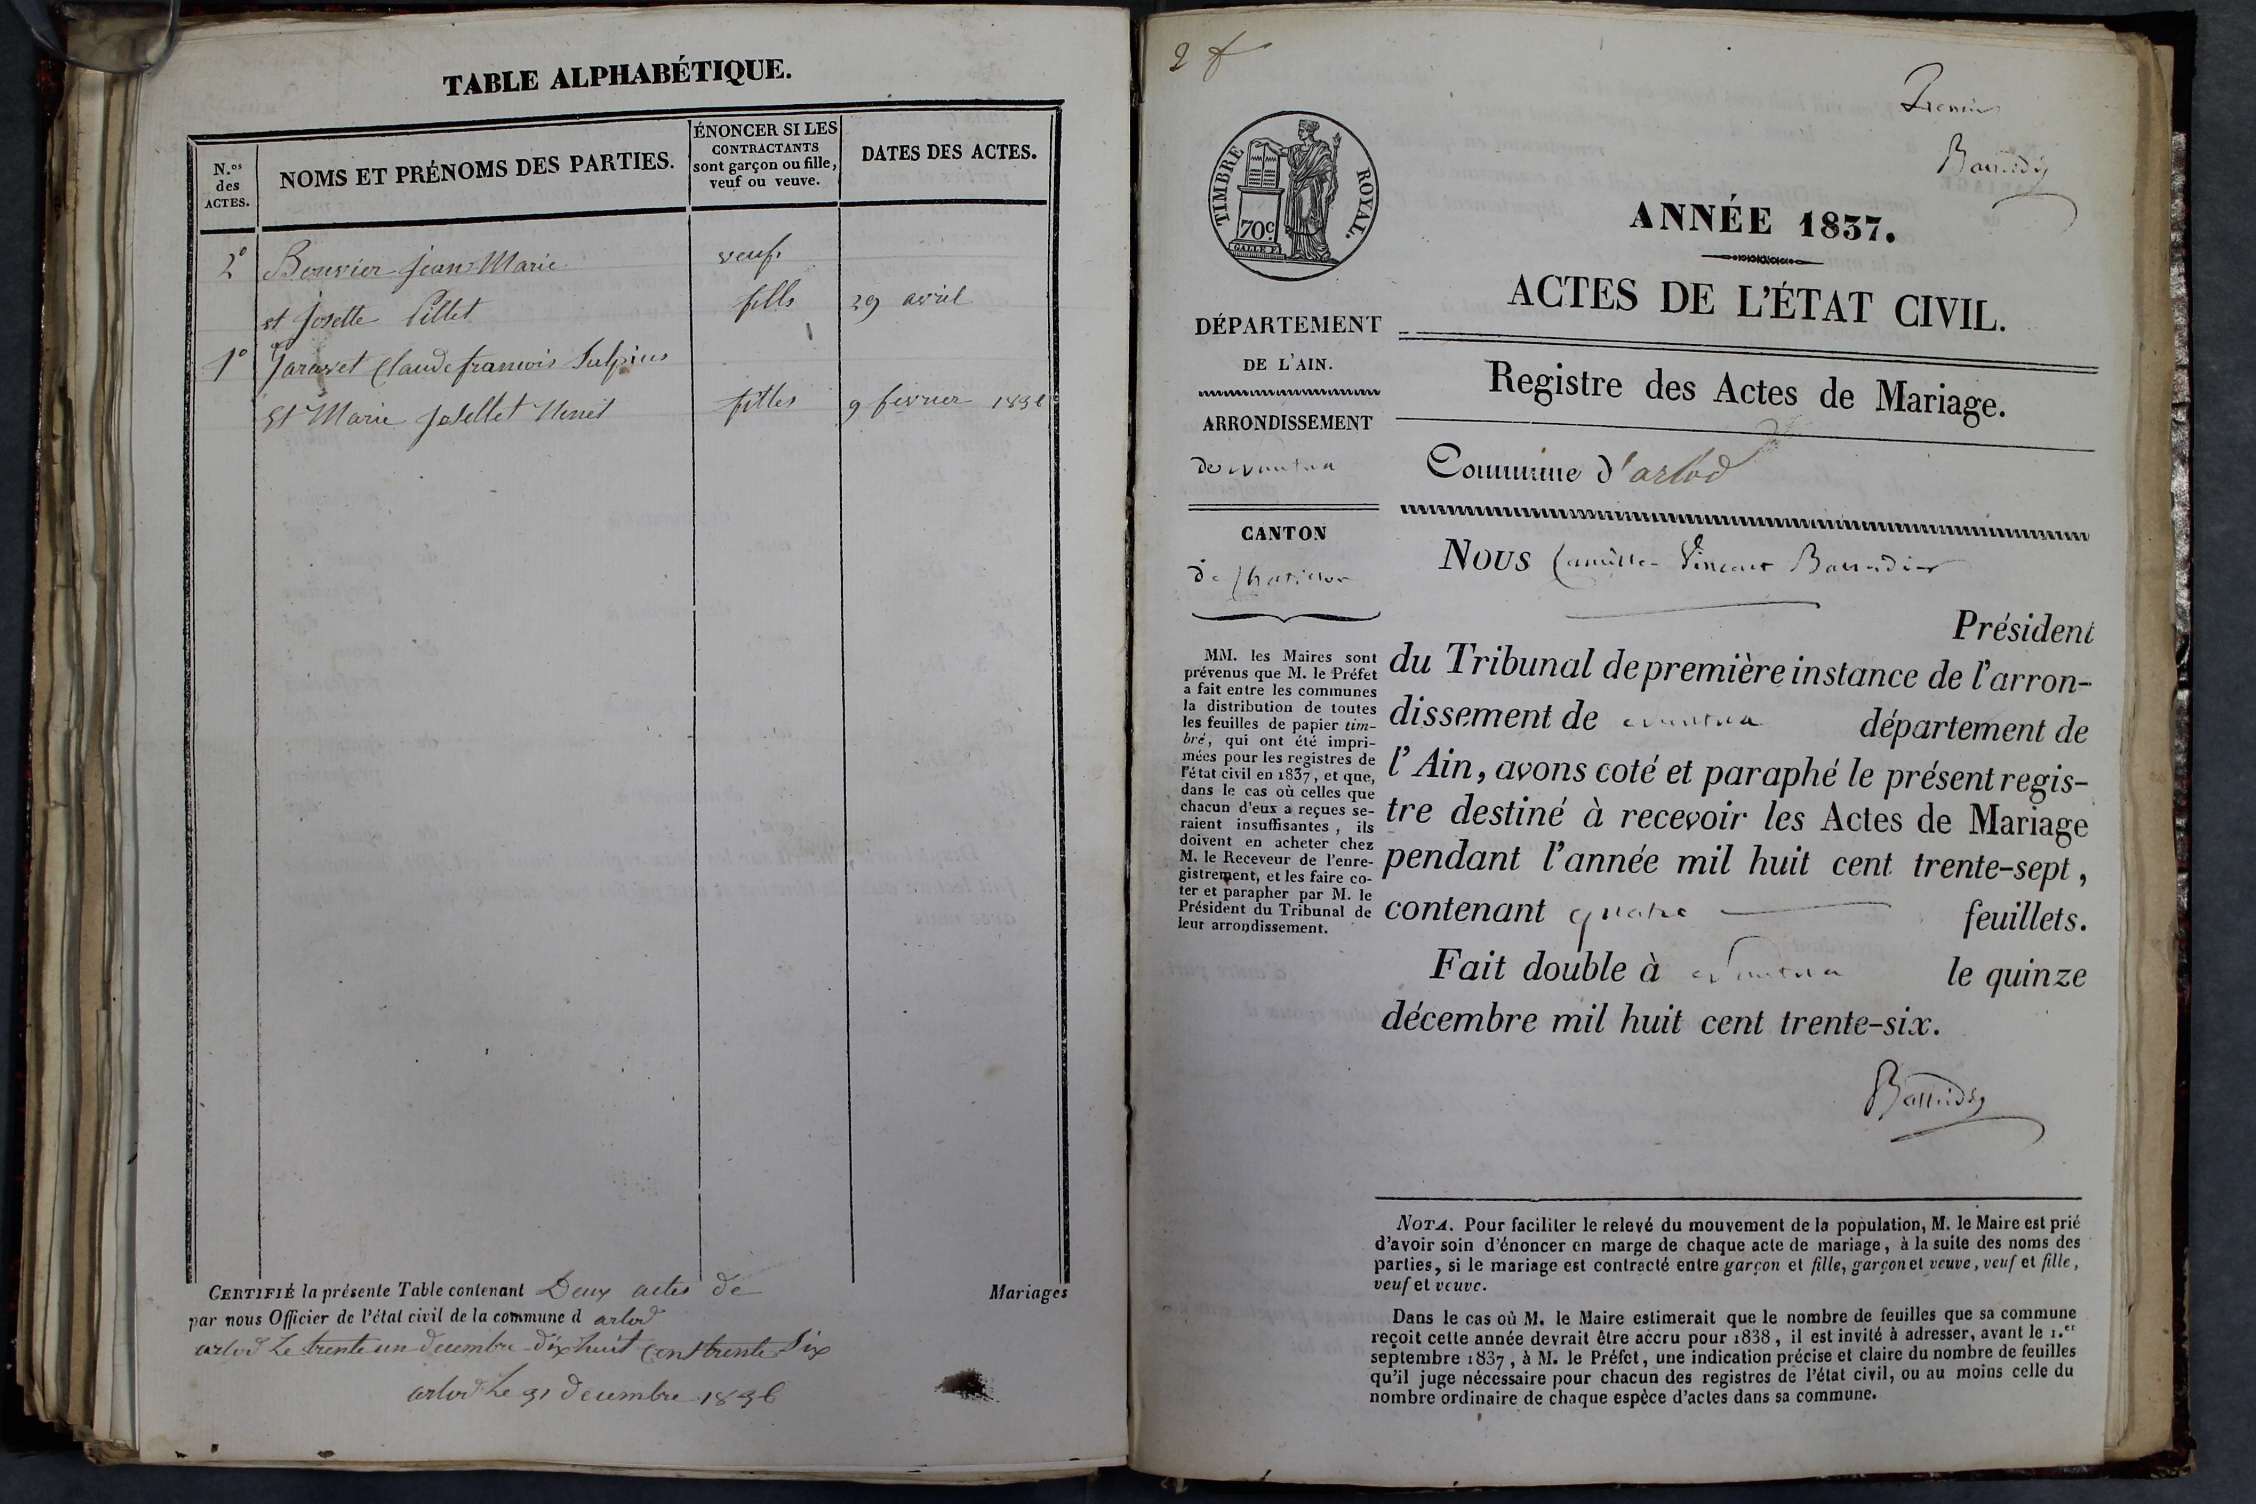 TABLE ALPHABÉTIQUE.
N.os
des
ACTES.
NOMS ET PRÉNOMS DES PARTIES.
ÉNONCER SI LES
CONTRACTANTS
sont garçon ou fille,
veuf ou veuve.
DATES DES ACTES.
2° Bouvier jean Marie veuf.
et josette Pillet fille 29 avril
1° Claude francois Sulpius
Et Marie filles 9 fevrier
CERTIFIÉ la présente Table contenant Deux actes de Mariages
par nous Officier de l'état civil de la commune d arlod
arlod Le trente un decembre dix huit cent trente Six
arlod Le 31 decembre 1836
2 f
Premier
TIMBRE ROYAL.
70c.
ANNÉE 1837.
ACTES DE L'ÉTAT CIVIL.
Registre des Actes de Mariage.
Commune d'arlod
DÉPARTEMENT
DE L'AIN.
ARRONDISSEMENT
de nantua
CANTON
de Chatillon
MM. les Maires sont
prévenus que M. le Préfet
a fait entre les communes
la distribution de toutes
les feuilles de papier tim-
bré, qui ont été impri-
mées pour les registres de
l'état civil en 1837, et que,
dans le cas où celles que
chacun d'eux a reçues se-
raient insuffisantes, ils
doivent en acheter chez
M. le Receveur de l'enre-
gistrement, et les faire co-
ter et parapher par M. le
Président du Tribunal de
leur arrondissement.
NOUS Camille Vincent
Président
du Tribunal de première instance de l'arron-
dissement de nantua département de
l'Ain, avons coté et paraphé le présent regis-
tre destiné à recevoir les Actes de Mariage
pendant l'année mil huit cent trente-sept,
contenant quatre feuillets.
Fait double à Nantua le quinze
décembre mil huit cent trente-six.
NOTA. Pour faciliter le relevé du mouvement de la population, M. le Maire est prié
d'avoir soin d'énoncer en marge de chaque acte de mariage, à la suite des noms des
parties, si le mariage est contracté entre garçon et fille, garçon et veuve, veuf et fille,
veuf et veuve.
Dans le cas où M. le Maire estimerait que le nombre de feuilles que sa commune
reçoit cette année devrait être accru pour 1838, il est invité à adresser, avant le 1.er
septembre 1837, à M. le Préfet, une indication précise et claire du nombre de feuilles
qu'il juge nécessaire pour chacun des registres de l'état civil, ou au moins celle du
nombre ordinaire de chaque espèce d'actes dans sa commune.